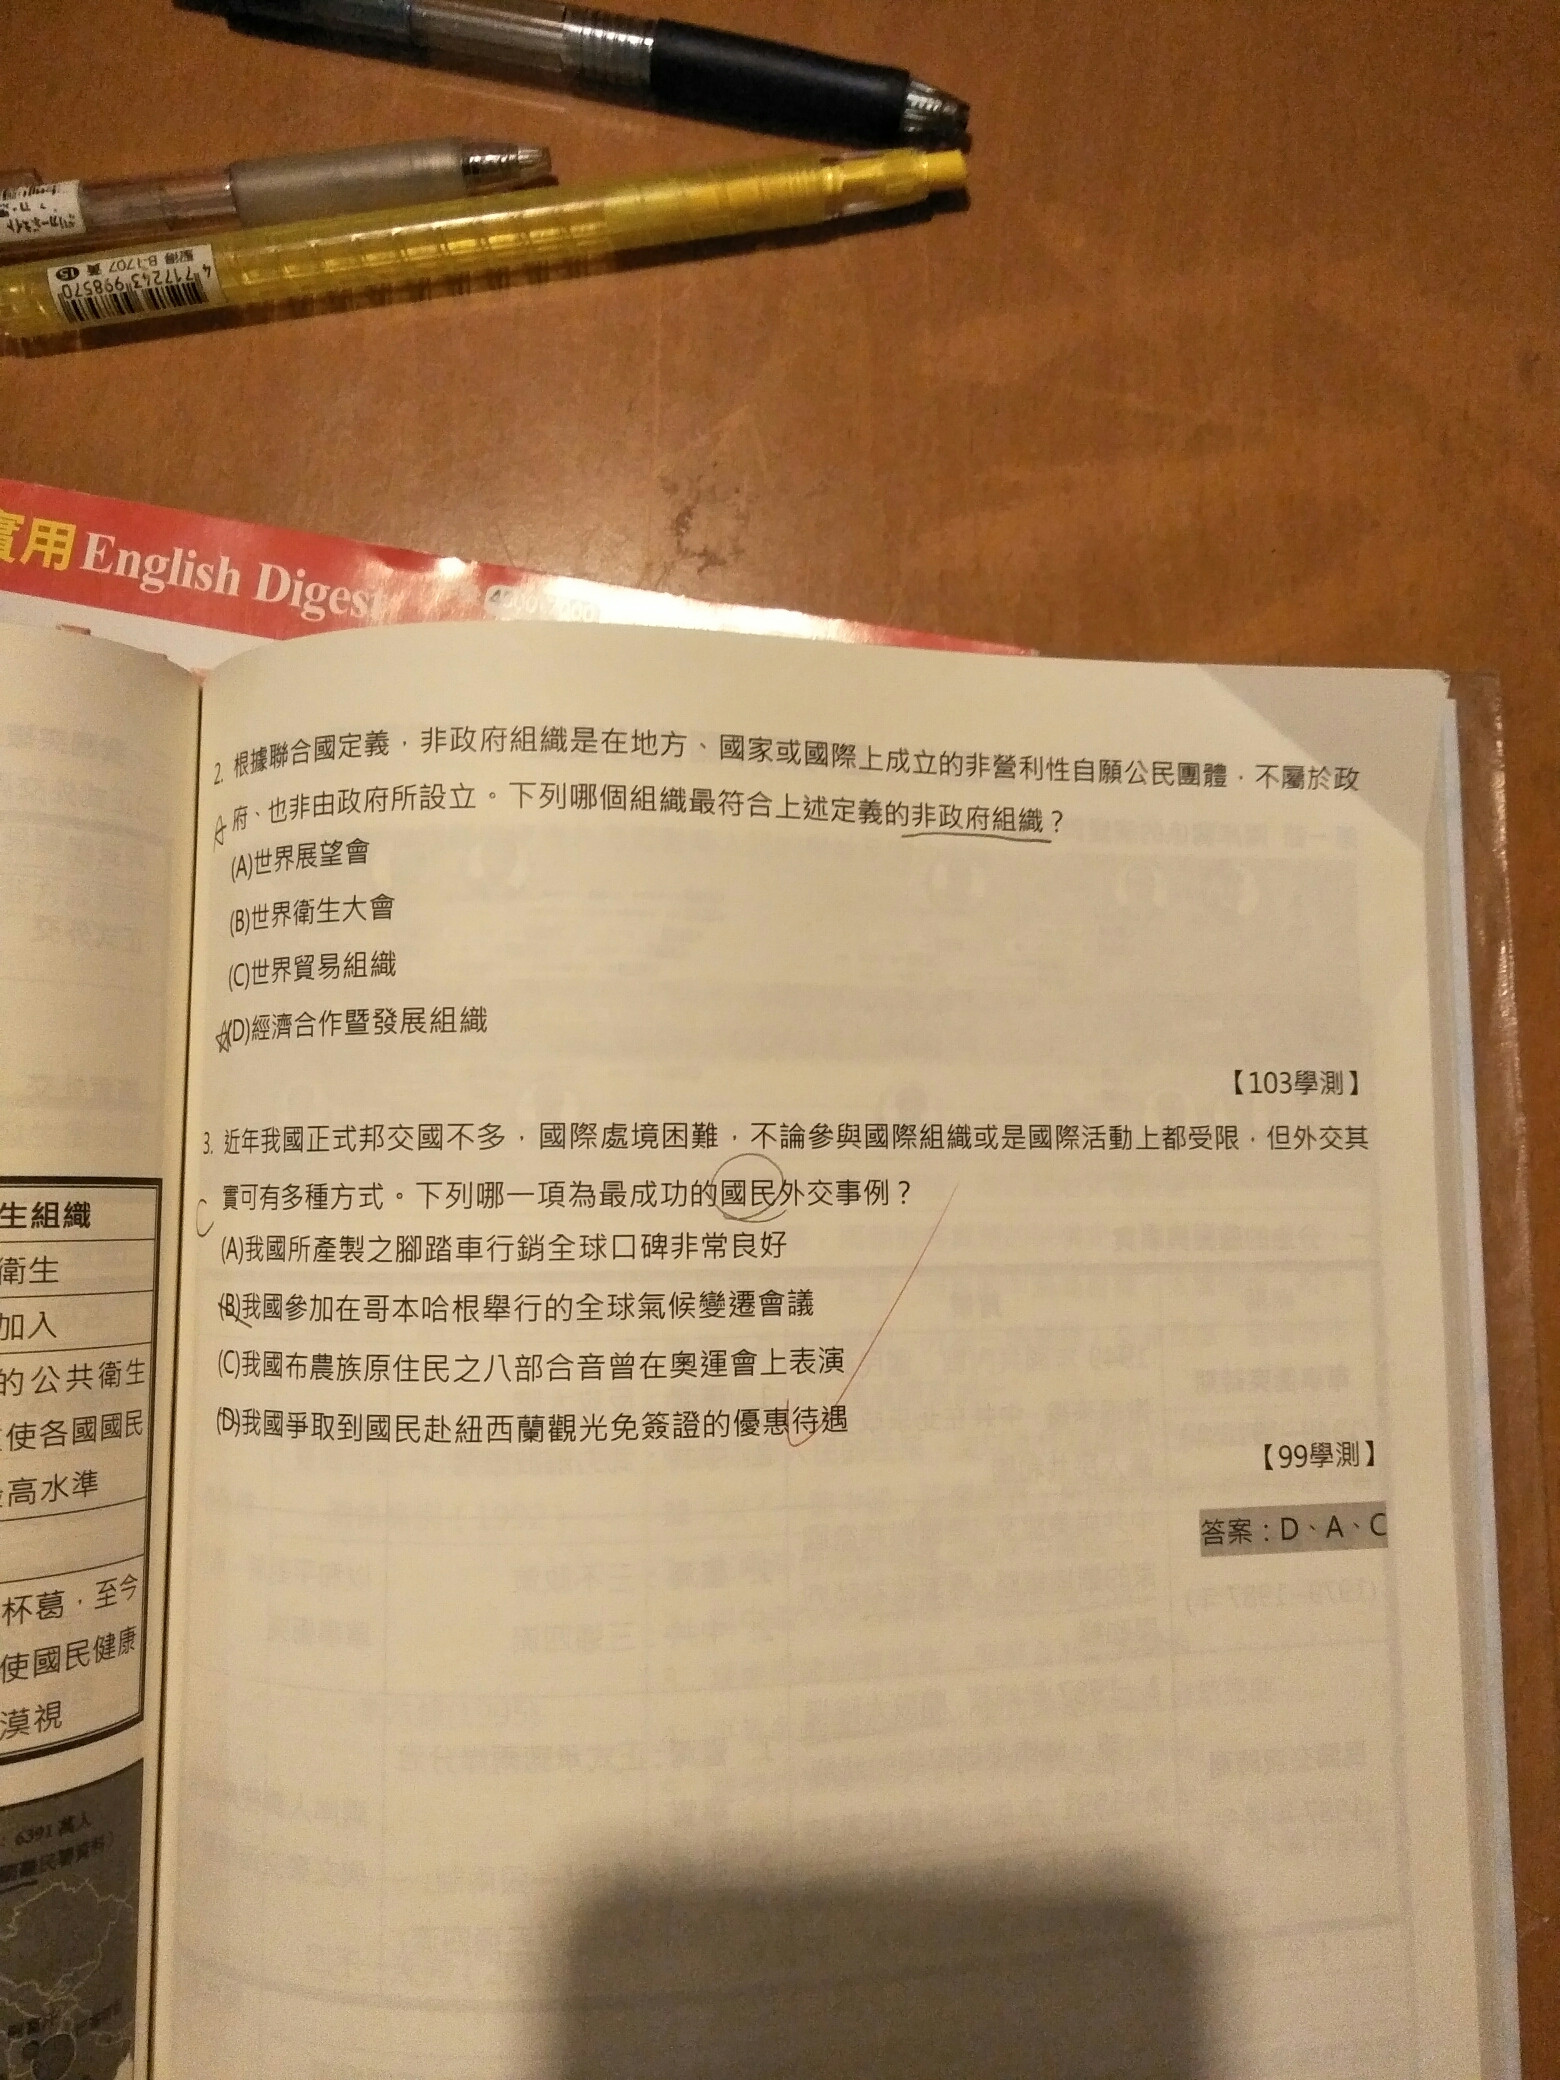 4717243 998570
堅得 B-1707 黃 15
實用 English Digest
2. 根據聯合國定義，非政府組織是在地方、國家或國際上成立的非營利性自願公民團體，不屬於政
府、也非由政府所設立。下列哪個組織最符合上述定義的非政府組織？
A
(A)世界展望會
(B)世界衛生大會
(C)世界貿易組織
(D)經濟合作暨發展組織
【103學測】
3. 近年我國正式邦交國不多，國際處境困難，不論參與國際組織或是國際活動上都受限，但外交其
實可有多種方式。下列哪一項為最成功的國民外交事例？
C
(A)我國所產製之腳踏車行銷全球口碑非常良好
(B)我國參加在哥本哈根舉行的全球氣候變遷會議
(C)我國布農族原住民之八部合音曾在奧運會上表演
(D)我國爭取到國民赴紐西蘭觀光免簽證的優惠待遇
【99學測】
答案：D、A、C
生組織
衛生
加入
的公共衛生
使各國國民
高水準
杯葛，至今
使國民健康
漠視
6391 萬人